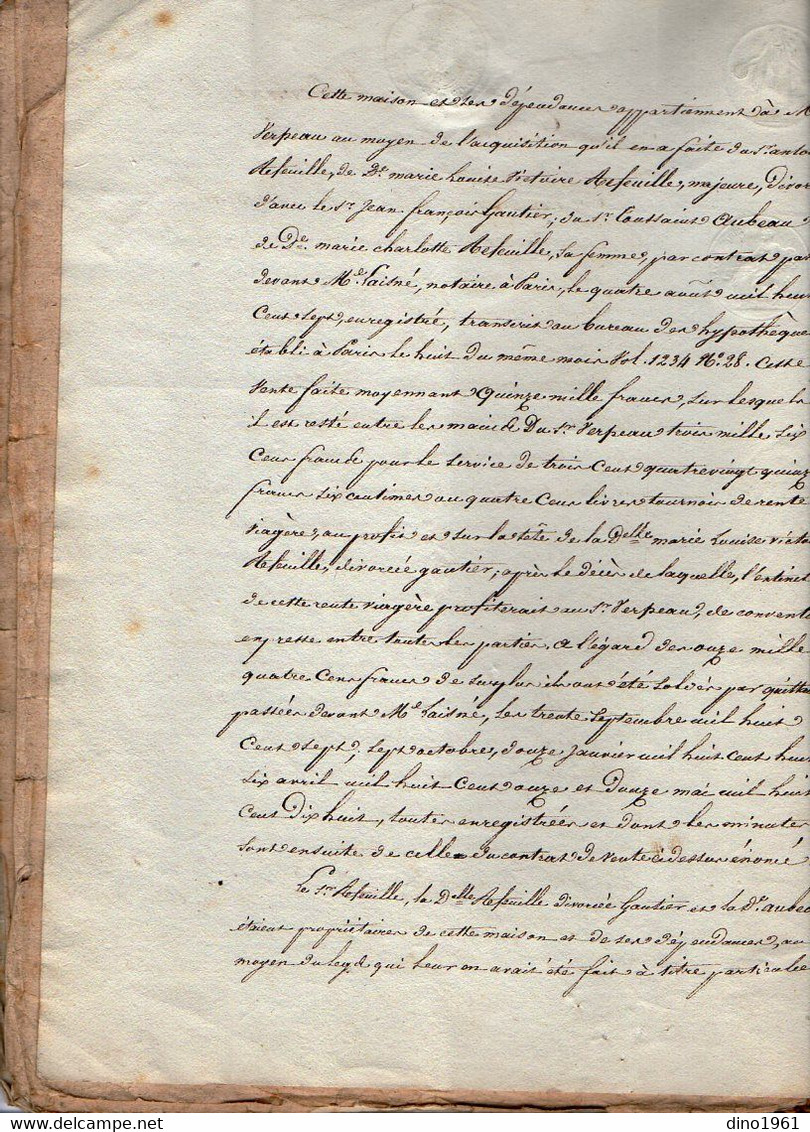 Cette maison et ses dépendances appartiennent à M
Verpeau au moyen de l'acquisition qu'il en a faite du Sr. anto
Refeuille, de De. marie Louise Victoire Refeuille, majeure, divor
d'avec le Sr. Jean françois Gautier; du Sr. Toussaint Aubeau
de De. marie charlotte Refeuille, sa femme, par contrat pas
devant Me. Laisné, notaire à Paris, le quatre août mil huit
Cent sept, enregistré, transcrit au bureau des hypothèque
établi à Paris le huit du même mois Vol. 1234 No. 28. Cette
Vente faite moyennant Quinze mille francs, sur lesquels
il est resté entre les mains du Sr. Verpeau trois mille six
Cens francs pour le service de trois Cent quatrevingt quinz
francs six centimes ou quatre Cens livres tournois de rente
Viagère, au profit et sur la tête de la Delle marie Louise victo
Refeuille, divorcée gautier; après le décès de laquelle, l'extinct
de cette rente viagère profiterait au Sr. Verpeau, de convent
expresse entre toutes les parties. a l'égard des onze mille
quatre Cens francs de surplus ils ont été soldés par quittan
passées devant Me. Laisné, les trente Septembre mil huit
Cent sept; sept octobre, douze Janvier mil huit Cent hui
six avril mil huit Cent onze et Douze mai mil huit
Cent Dix huit, toutes enregistrées et dont les minutes
sont ensuite de celle du contrat de Vente ci dessus énoncé
Le Sr. Refeuille, la Delle Refeuille divorcée Gautier et la De. aubea
étaient propriétaires de cette maison et de ses dépendances, au
moyen du legs qui leur en avait été fait à titre particulie
dino1961